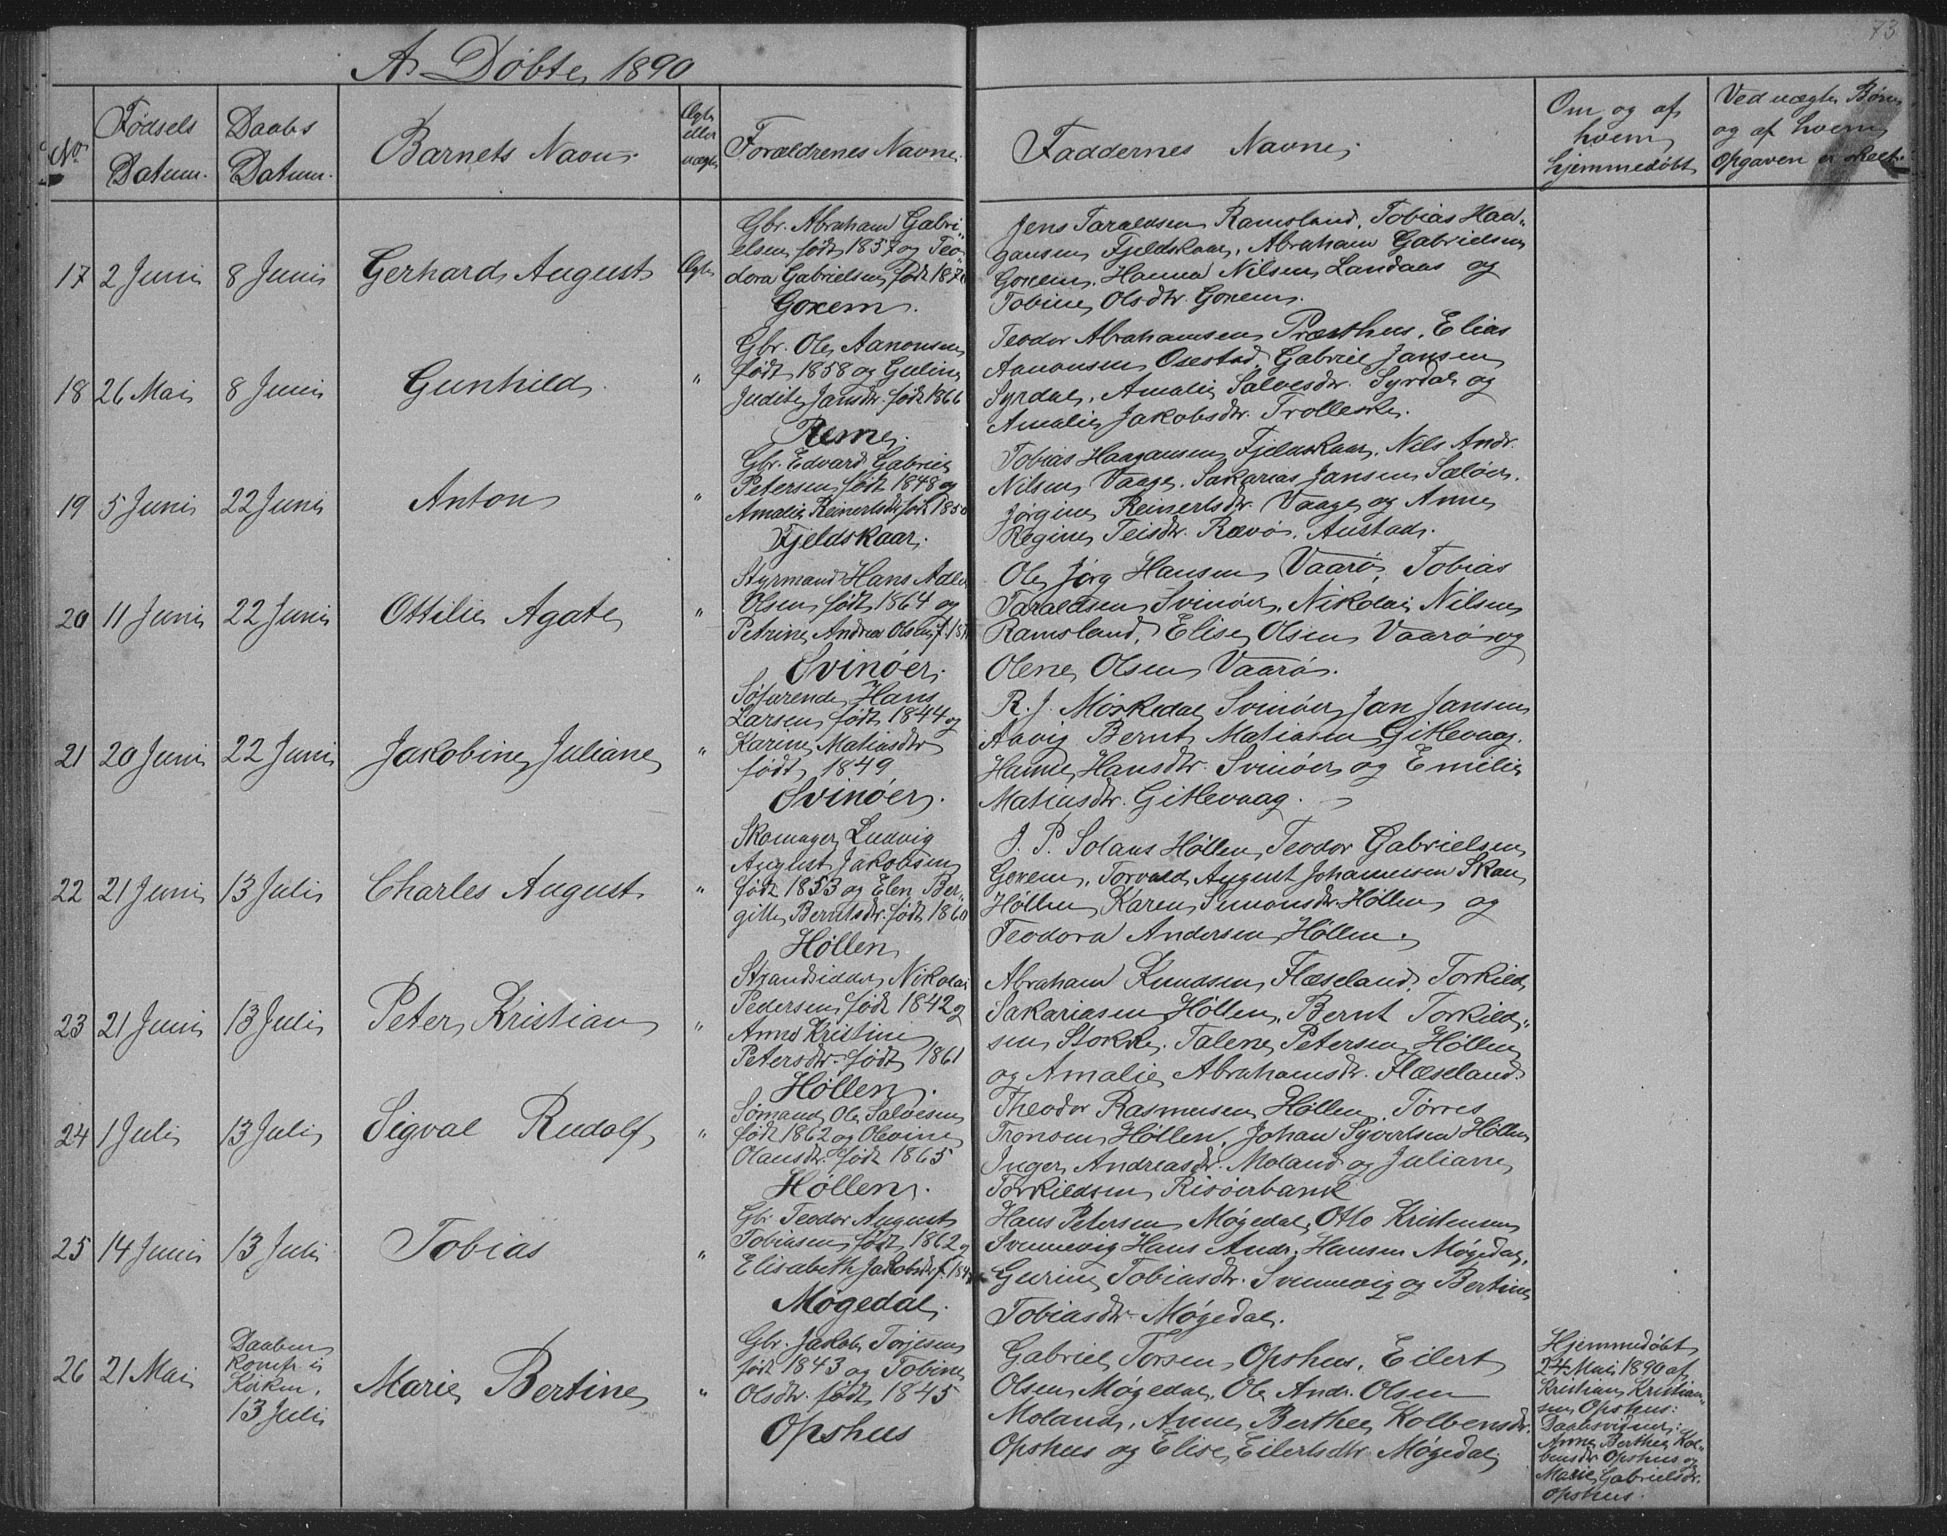 73
A. Døbte, 1890
No
Fødsels Datum.
Daabs Datum.
Barnets Navn.
Ægte eller uægte
Forældrenes Navne.
Faddernes Navne.
Om og af hvem hjemmedøbt
Ved uægte Børn og af hvem Opgaven er skeet.
17 2 Juni 8 Juni Gerhard August Ægte
Gbr. Abraham Gabri-
elsen født 1857 og Teo-
dora Gabrielsen født 187
Gonem.
Jens Taraldsen Ramsland. Tobias Haa-
gansen Fjeldskaar. Abraham Gabrielsen
Gonem. Hanna Nilsen Landaas og
Tobine Olsdtr. Gonem.
18 26 Mai 8 Juni Gunhild "
Gbr. Ole Aanonsen
født 1858 og Guline
Judite Jansdtr. født 1866
Reme.
Teodor Abrahamsen Præsthus. Elias
Aanonsen Osestad. Gabriel Jansen
Syrdal. Amalie Salvesdtr. Syrdal og
Amalie Jakobsdtr. Trolleske.
19 5 Juni 22 Juni Anton "
Gbr. Edvard Gabriel
Petersen født 1848 og
Amalie Reinertsdtr født 1850
Fjeldskaar.
Tobias Haagansen Fjeldskaar. Nils Andr.
Nilsen Vaage. Sakarias Jansen Seløer.
Jørgine Reinertsdtr. Vaage og Anne
Regine Teisdtr. Rævø. Austad.
20 11 Juni 22 Juni Ottilie Agate "
Styrmand Hans Adl
Olsen født 1864 og
Petrine Andrea Olsen f. 18
Svinøer.
Ole Jørg Hansen Vaarø, Tobias
Taraldsen Svinøer, Nikolai Nilsen
Ramsland, Elise Olsen Vaarø og
Olene Olsen Vaarø.
21 20 Juni 22 Juni Jakobine Juliane "
Søfarende Hans
Larsen født 1844 og
Karine Matiasdtr
født 1849
Svinøer.
R. J. Møskedal Svinøer Jan Jansen
Aavig Bernt Matiasen Gitlevaag.
Hanne Hansdtr. Svinøer og Emilie
Matiasdtr. Gitlevaag.
22 21 Juni 13 Juli Charles August "
Skomager Ludvig
August Jakobsen
født 1853 og Elen Ber-
gitte Berntsdtr. født 1860
Høllen
J. P. Solaas Høllen, Teodor Gabrielsen
Gonem. Torvald August Johannesen Skau
Høllen Karen Simonsdtr. Høllen og
Teodora Andersen Høllen.
23 21 Juni 13 Juli Peter Kristian "
Strandsidder Nikolai
Pedersen født 1842 og
Anne Kristine
Petersdtr. født 1861
Høllen.
Abraham Knudsen Flæseland, Torkild
Sakariasen Høllen. Bernt Torkild-
sen Stokke. Talene Petersen Høllen
og Amalie Abrahamsdtr. Flæseland.
24 1 Juli 13 Juli Sigval Rudolf "
Sømand Ole Salvesen
født 1862 og Olevine
Olausdtr. født 1865
Høllen.
Theodor Rasmusen Høllen, Tørres
Tronsen Høllen, Johan Syvertsen Høllen
Inger Andreasdtr. Moland og Juliane
Torkildsen Risøerbank
25 14 Juni 13 Juli Tobias "
Gbr Teodor August
Tobiasen født 1862 og
Elisabeth Jakobsdtr f. 184
Møgedal.
Hans Petersen Møgedal, Otto Kristensen
Svennevig Hans Andr. Hansen Møgedal.
Gurine Tobiasdtr. Svennevig og Bertine
Tobiasdtr Møgedal.
26 21 Mai Daaben Konfr. i Kirken. 13 Juli Marie Bertine "
Gbr. Jakob Torjesen
født 1843 og Tobine
Olsdtr. født 1845
Opshus
Gabriel Torsen Opshus, Eilert
Olsen Møgedal. Ole Andr. Olsen
Moland, Anne Berthe Kolbensdtr.
Opshus og Elise Eilertsdtr Møgedal.
Hjemmedøbt
24 Mai 1890 af
Kristian Kristian-
sen Opshus:
Daabsvidner:
Anne Berthe Kol-
bensdtr Opshus og
Marie Gabrielsdtr.
Opshus.